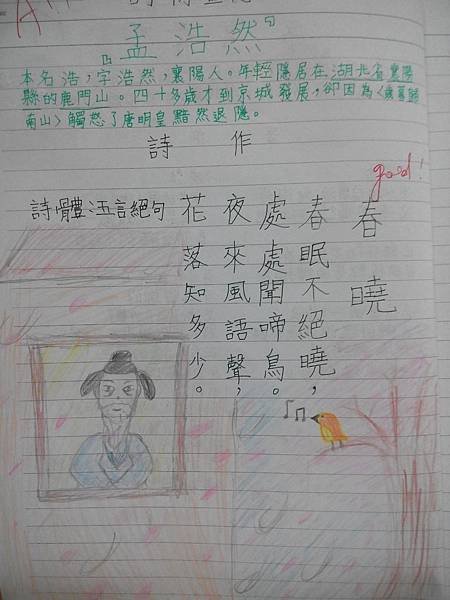 『孟浩然』
本名浩，字浩然，襄陽人。年輕隱居在湖北省襄陽
縣的鹿門山。四十多歲才到京城發展，卻因為〈歲暮歸
南山〉觸怒了唐明皇黯然退隱。
詩作
good!
春曉
春眠不絕曉，
處處聞啼鳥。
夜來風語聲，
花落知多少。
詩體：五言絕句